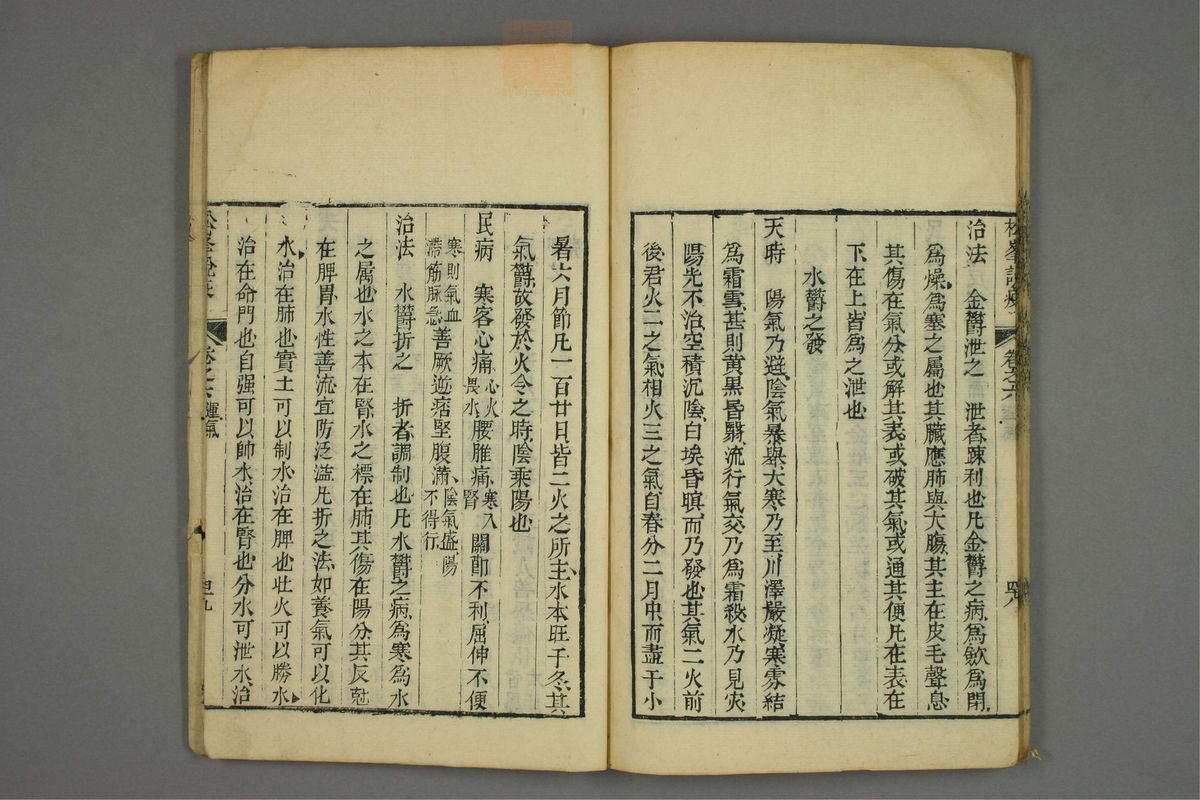 治法　金鬱泄之　泄者疎利也凡金鬱之病為歛為閉
為燥為塞之屬也其臟應肺與大腸其主在皮毛聲息
其傷在氣分或解其表或破其氣或通其便凡在表在
下在上皆為之泄也
水鬱之發
天時　陽氣乃避陰氣暴舉大寒乃至川澤嚴凝寒雰結
為霜雪甚則黃黑昏翳流行氣交乃為霜殺水乃見灾
陽光不治空積沉陰白埃昏暝而乃發也其氣二火前
後君火二之氣相火三之氣自春分二月中而盡于小
暑六月節凡一百廿日皆二火之所主水本旺于冬其
氣鬱故發於火令之時陰乘陽也
民病　寒客心痛心火畏水腰脽痛寒入腎關節不利屈伸不便
寒則氣血滯筋脈急善厥逆痞堅腹滿陰氣盛陽不得行
治法　水鬱折之　折者調制也凡水鬱之病為寒為水
之屬也水之本在腎水之標在肺其傷在陽分其反尅
在脾胃水性善流宜防泛溢凡折之法如養氣可以化
水治在肺也實土可以制水治在脾也壯火可以勝水
治在命門也自强可以帥水治在腎也分水可泄水治
松峯說疫
卷之六
運氣
四九
松峯說疫
卷之六
四八